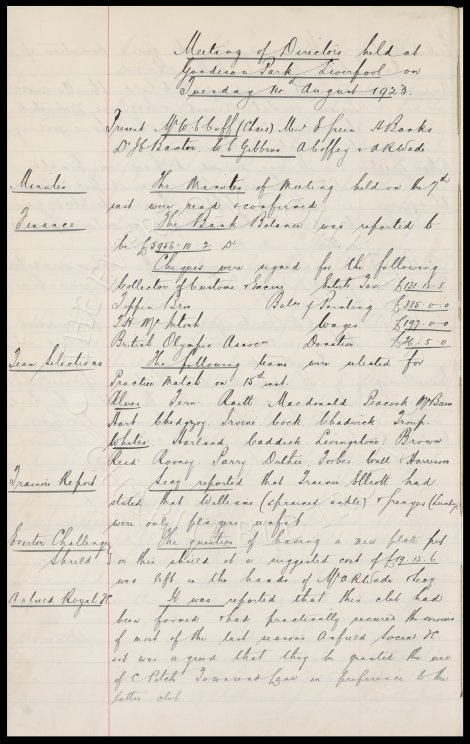 Meeting of Directors held at
Goodison Park Liverpool on
Tuesday 14 August 1923.
Present Mr W C Cuff (Chair) Messrs E Green A Banks
Dr J C Baxter, W C Gibbins A Coffey & A R Wade
Minutes The Minutes of Meeting held on the 7th
inst were read & confirmed
Finance The Bank Balance was reported to
be £5956.10.2 Dr
Cheques were signed for the following
Collector of Customs & Excise Ents Tax £131.12.8
Tippin Bros Bal of Printing £385.0.0
T H McIntosh Wages £197.0.0
British Olympic Assocn Donation £26.5.0
Team Selections The following teams were selected for
Practice Match on 15th inst.
Blues Fern Raitt Macdonald Peacock McBain
Hart Chedgzoy Irvine Cock Chadwick Troup.
Whites Harland Caddick Livingstone Brown
Reid Rooney Parry Duthie Forbes Wall & Harrison
Trainers Report Secy reported that Trainer Elliott had
stated that Williams (sprained ankle) &
were only players unfit.
Everton Challenge Shield The question of having a new plate put
on this shield at a suggested cost of £19.12.6
was left in the hands of Mr A R Wade & Secy
Anfield Royal FC It was reported that this club had
been formed & had practically secured the services
of most of the last seasons Anfield Social FC
& it was agreed that they be granted the use
of C Pitch Townsend Lane in preference to the
latter club.